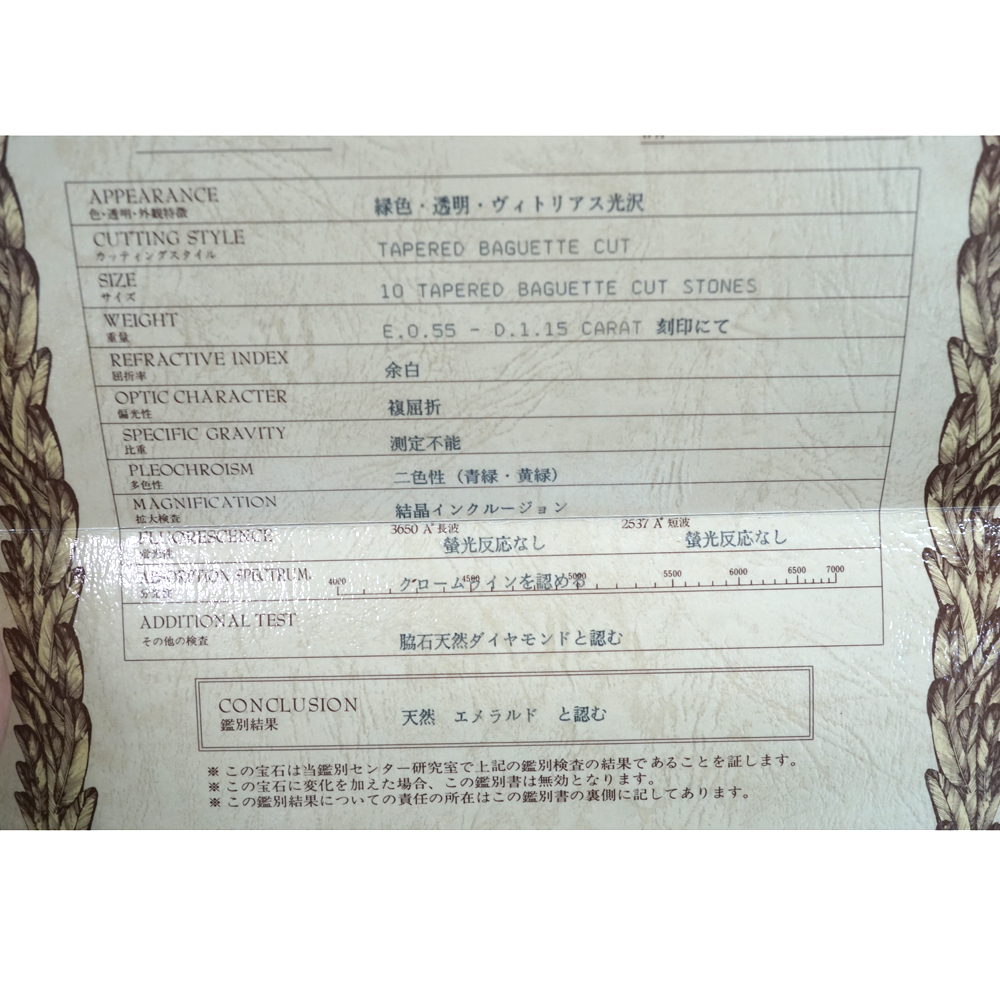 APPEARANCE
色・透明・外観特徴
緑色・透明・ヴィトリアス光沢
CUTTING STYLE
カッティングスタイル
TAPERED BAGUETTE CUT
SIZE
サイズ
10 TAPERED BAGUETTE CUT STONES
WEIGHT
重量
E.0.55 - D.1.15 CARAT 刻印にて
REFRACTIVE INDEX
屈折率
余白
OPTIC CHARACTER
偏光性
複屈折
SPECIFIC GRAVITY
比重
測定不能
PLEOCHROISM
多色性
二色性（青緑・黄緑）
MAGNIFICATION
拡大検査
結晶インクルージョン
FLUORESCENCE
蛍光性
3650 A° 長波
螢光反応なし
2537 A° 短波
螢光反応なし
ABSORPTION SPECTRUM.
分光性
4000 4500 5000 5500 6000 6500 7000
クロームラインを認める
ADDITIONAL TEST
その他の検査
脇石天然ダイヤモンドと認む
CONCLUSION
鑑別結果
天然 エメラルド と認む
※ この宝石は当鑑別センター研究室で上記の鑑別検査の結果であることを証します。
※ この宝石に変化を加えた場合、この鑑別書は無効となります。
※ この鑑別結果についての責任の所在はこの鑑別書の裏側に記してあります。